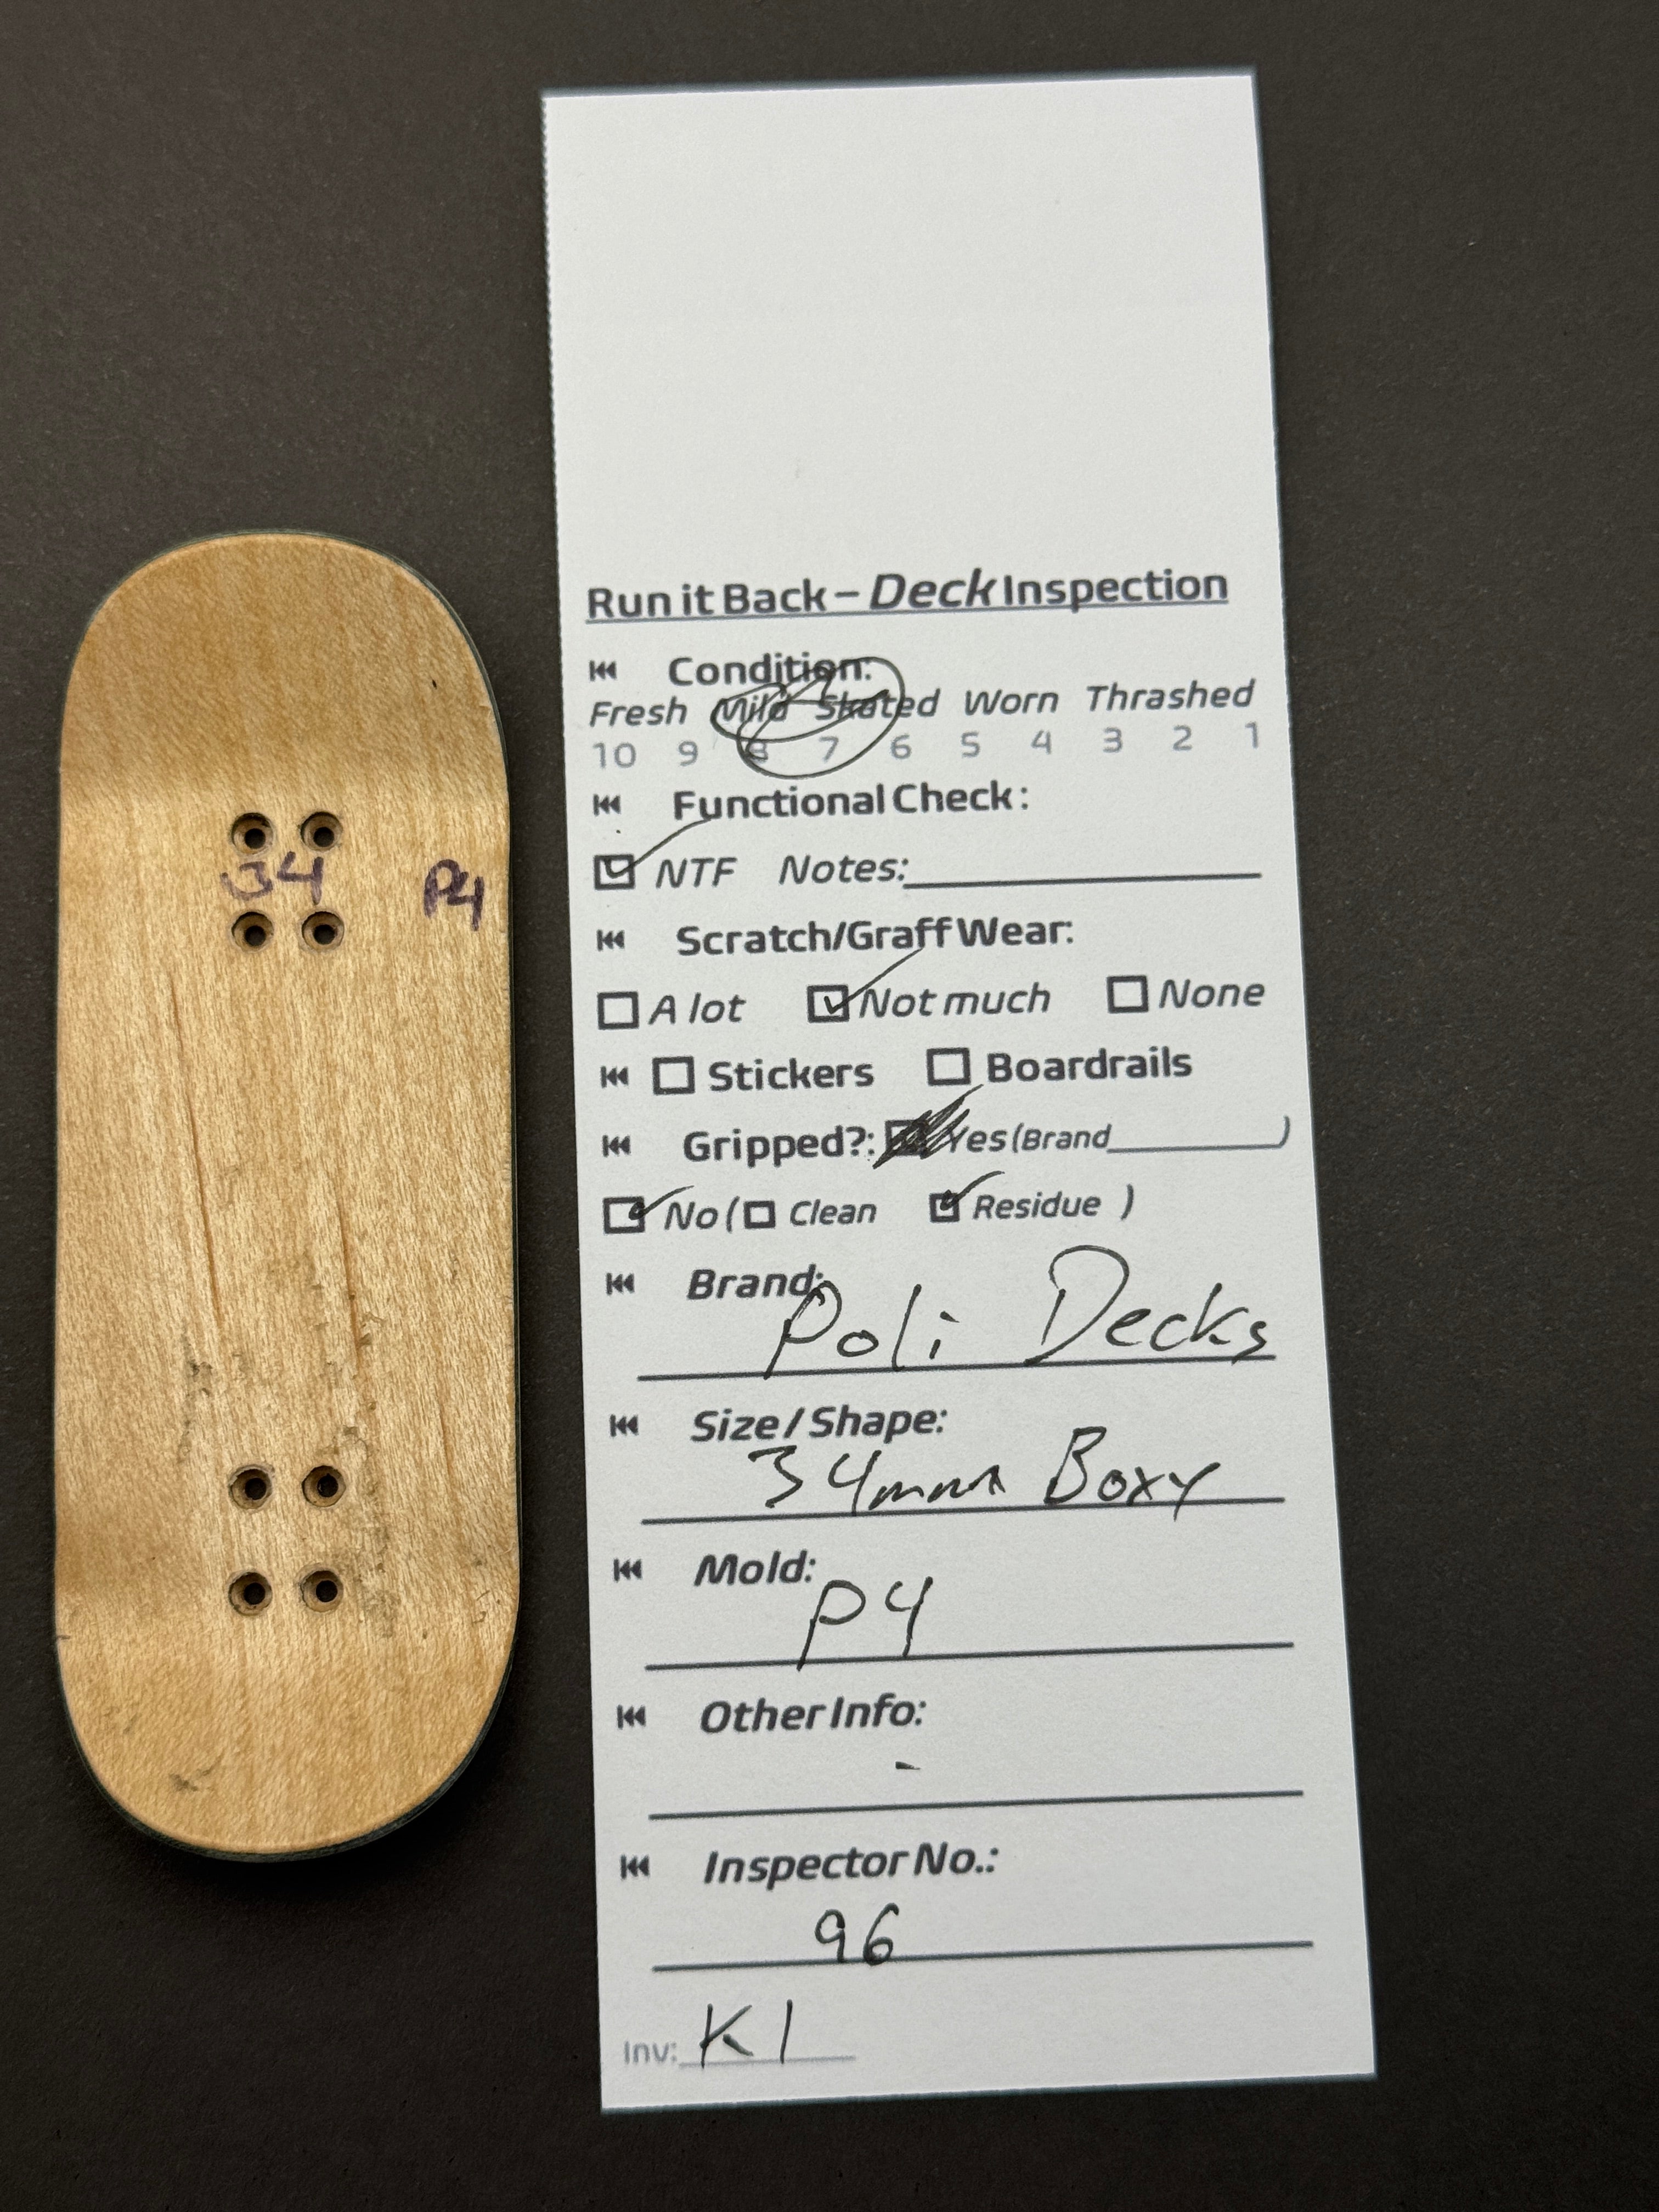 34 P4
Run it Back – Deck Inspection
Condition:
Fresh Mild Skated Worn Thrashed
10 9 8 7 6 5 4 3 2 1
Functional Check:
NTF Notes:
Scratch/Graff Wear:
A lot Not much None
Stickers Boardrails
Gripped?: Yes (Brand )
No ( Clean Residue )
Brand:
Poli Decks
Size / Shape:
34mm Boxy
Mold:
P4
Other Info:
-
Inspector No.:
96
Inv: K1